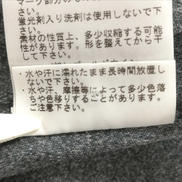 蛍光剤入り洗剤は使用しないで下
さい。
素材の性質上、多少収縮する可能
性があります。形を整えてから干
して下さい。
・水や汗に濡れたまま長時間放置し
ないで下さい。
・水や汗、摩擦等によって多少色落
ちや色移りすることがあります。
ご注意下さい。